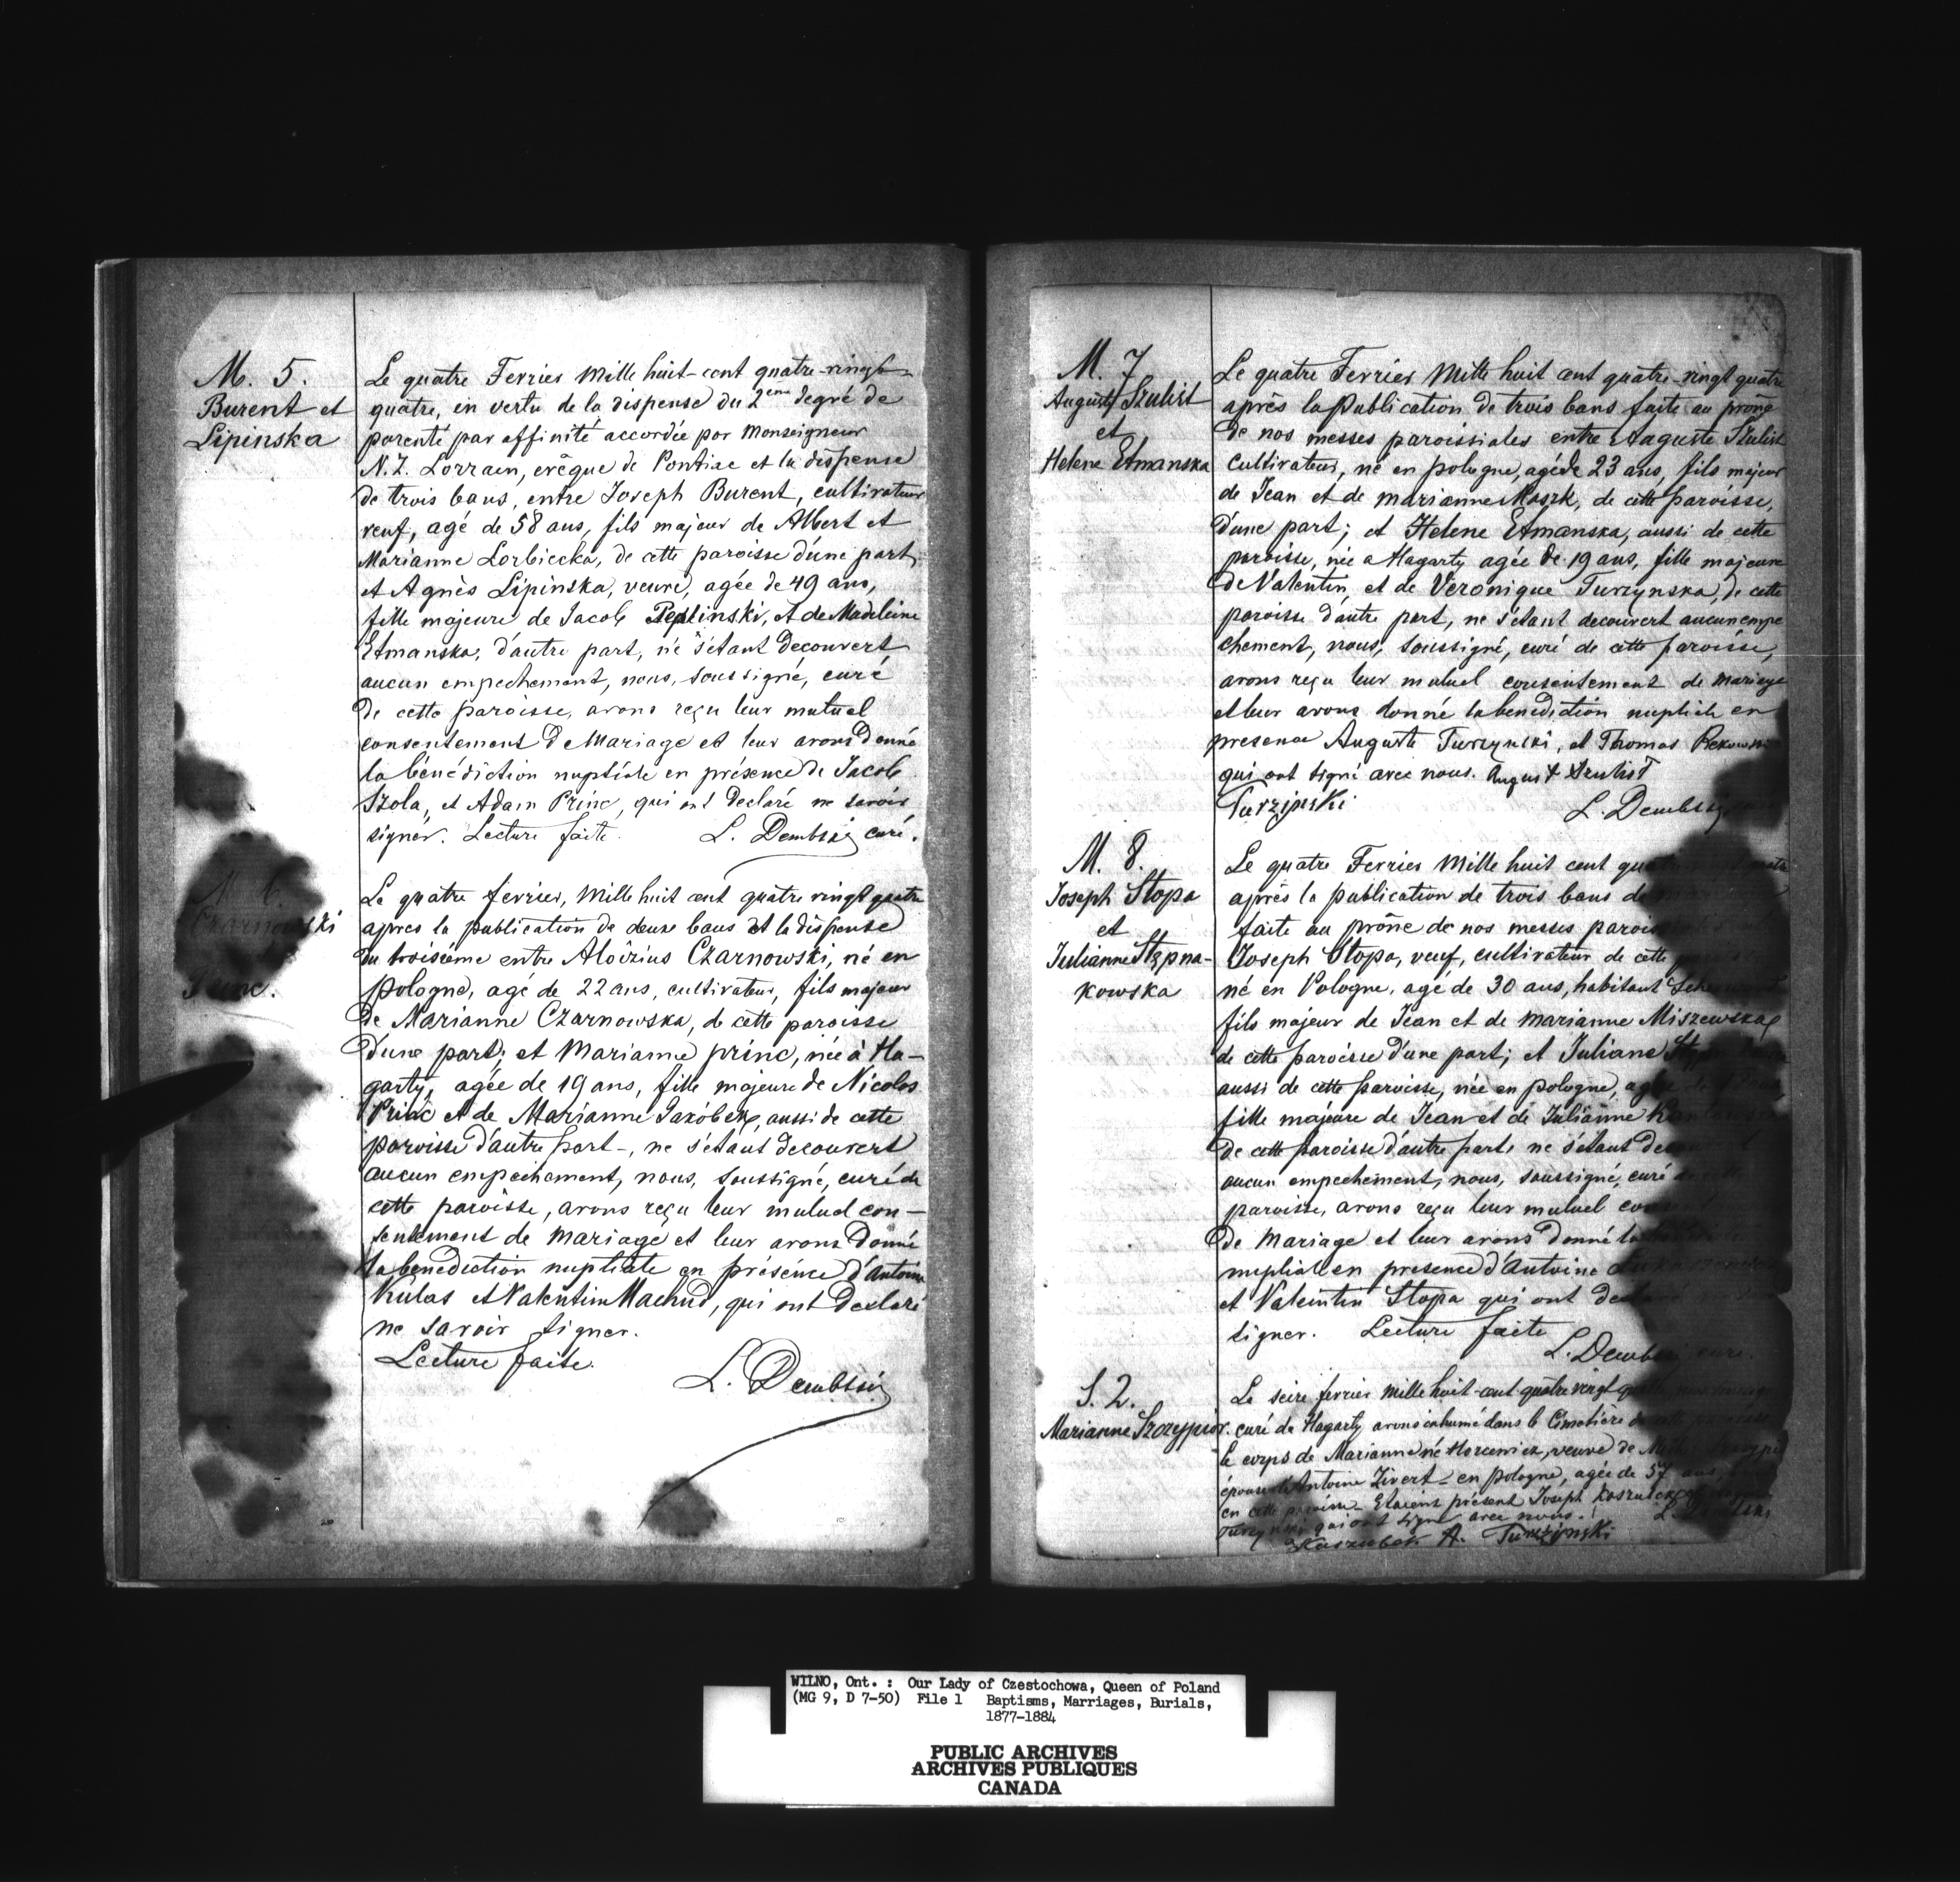 M. 5.
Burent et
Lipinska
Le quatre Fevrier Mille huit-cent quatre-vingt
quatre, en vertu de la dispense du 2ème degré de
parenté par affinité accordée par Monseigneur
N. Z. Lorrain, evêque de Pontiac et la dispense
de trois bans, entre Joseph Burent, cultivateur
veuf, agé de 58 ans, fils majeur de Albert et
Marianne Lorbiecka, de cette paroisse d'une part
et Agnès Lipinska, veuve, agée de 49 ans,
fille majeure de Jacob Peplinski, et de Madeleine
Etmanska, d'autre part, ne s'étant decouvert
aucun empechement, nous, soussigné, curé
de cette paroisse, avons reçu leur mutuel
consentement de Mariage et leur avons donné
la bénédiction nuptiale en présence de Jacob
Szola, et Adam Princ, qui ont declaré ne savoir
signer. Lecture faite. L. Dembski curé.
M. 6.
Czarnowski
Princ.
Le quatre fevrier, Mille huit cent quatre vingt quatre
apres la publication de deux bans et la dispense
du troisième entre Aloïzius Czarnowski, né en
pologne, agé de 22 ans, cultivateur, fils majeur
de Marianne Czarnowska, de cette paroisse
d'une part; et Marianne princ, née à Ha-
garty, agée de 19 ans, fille majeure de Nicolas
Princ et de Marianne, aussi de cette
paroisse d'autre part-, ne s'étant decouvert
aucun empechement, nous, soussigné, curé de
cette paroisse, avons reçu leur mutuel con-
sentement de mariage et leur avons donné
la benediction nuptiale en présence d'Antoine
Kulas et Valentin Machud, qui ont declaré
ne savoir signer.
Lecture faite.
L. Dembski
M. 7
August Szulist
et
Helene Etmanska
Le quatre Fevrier Mille huit cent quatre-vingt quatre
après la Publication de trois bans faite au prône
de nos messes paroissiales entre Auguste Szulist
cultivateur, né en pologne, agé de 23 ans, fils majeur
de Jean et de marianne, de cette paroisse,
d'une part; et Helene Etmanska, aussi de cette
paroisse, née a Hagarty agée de 19 ans, fille majeure
de Valentin, et de Veronique Turzynska, de cette
paroisse d'autre part, ne s'étant decouvert aucun empe
chement, nous, soussigné, curé de cette paroisse,
avons reçu leur mutuel consentement de mariage
et leur avons donné la benediction nuptiale en
presence Auguste Turzynski, et Thomas Rekowski
qui ont signé avec nous. August Szulist
Turzinski
L. Dembski
M. 8.
Joseph Stopa
et
Julianne Stępna-
kowska
Le quatre Fevrier Mille huit cent quatre
après la publication de trois bans de
faite au prône de nos messes
Joseph Stopa, veuf, cultivateur de cette
né en Pologne, agé de 30 ans, habitant
fils majeur de Jean et de marianne Miszewska,
de cette paroisse d'une part; et Juliane
aussi de cette paroisse, née en pologne, agée de
fille majeure de Jean et de Julianne
de cette paroisse d'autre part, ne s'étant
aucun empechement, nous, soussigné, curé
paroisse, avons reçu leur mutuel
de Mariage et leur avons donné la
nuptiale en presence d'Antoine
et Valentin Stopa qui ont
signer. Lecture faite
L. Dembski curé.
S. 2.
Marianne Szczypior.
Le seize fevrier mille huit-cent quatre vingt
curé de Hagarty avons inhumé dans le Cimetière de
le corps de Marianne né, veuve de
épouse d'Antoine Zivert en pologne, agée de 57 ans,
en cette paroisse. Etaient présent Joseph
qui ont signé avec nous.
A. Turzinski
WILNO, Ont. : Our Lady of Czestochowa, Queen of Poland
(MG 9, D 7-50) File 1 Baptisms, Marriages, Burials,
1877-1884
PUBLIC ARCHIVES
ARCHIVES PUBLIQUES
CANADA